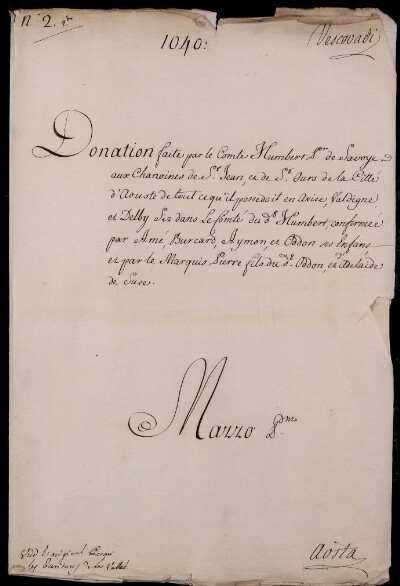 N° 2.
1040:
Vescovadi
Donation faite par le Comte Humbert P.er de Savoye
aux Chanoines de S.t Jean, et de S.t Ours de la Citté
d'Aouste de tout ce qu'il possedoit en Avise, Valdegne
et Delby Sis dans le Comté du d.t Humbert, confirmée
par Amé, Burcard, Aymon, et Oddon ses Enfans
et par le Marquis Pierre fils du d.t Oddon, et d'Adelaide
de Suse.
Mazzo P.mo
Aosta